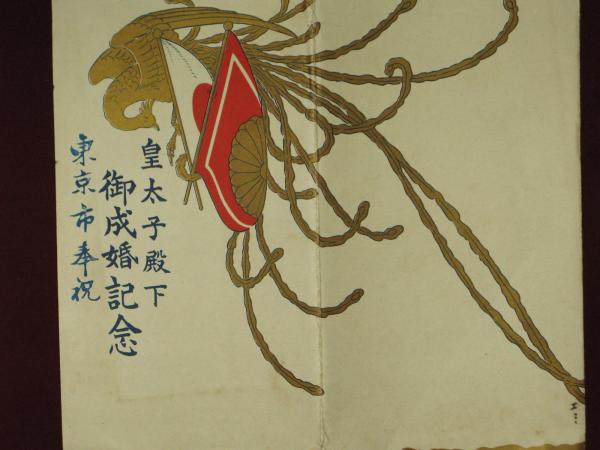 皇太子殿下
御成婚記念
東京市奉祝